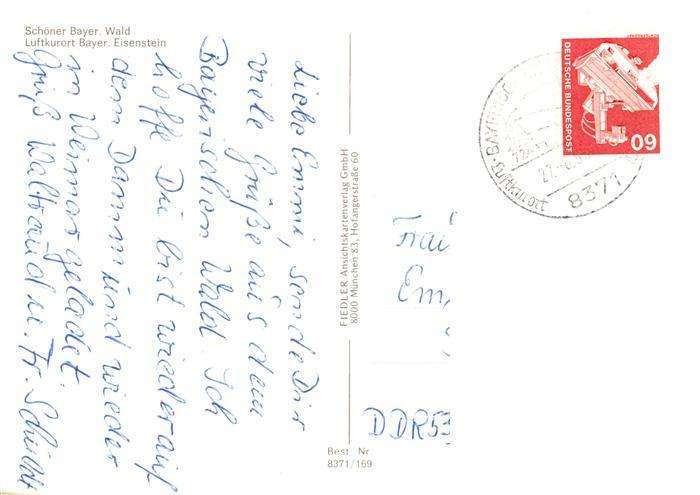 Schöner Bayer. Wald
Luftkurort Bayer. Eisenstein
Liebe Emmi, sende Dir
viele Grüße aus dem
Bayerischen Wald. Ich
hoffe Du bist wieder auf
dem Damm und wieder
in Weimar gelandet
Gruß Waltraud u. Fr.
FIEDLER Ansichtskartenverlag GmbH
8000 München 83, Hofangerstraße 60
Best Nr
8371/169
DEUTSCHE BUNDESPOST
60
Luftkurort
8371
Em
DDR 53